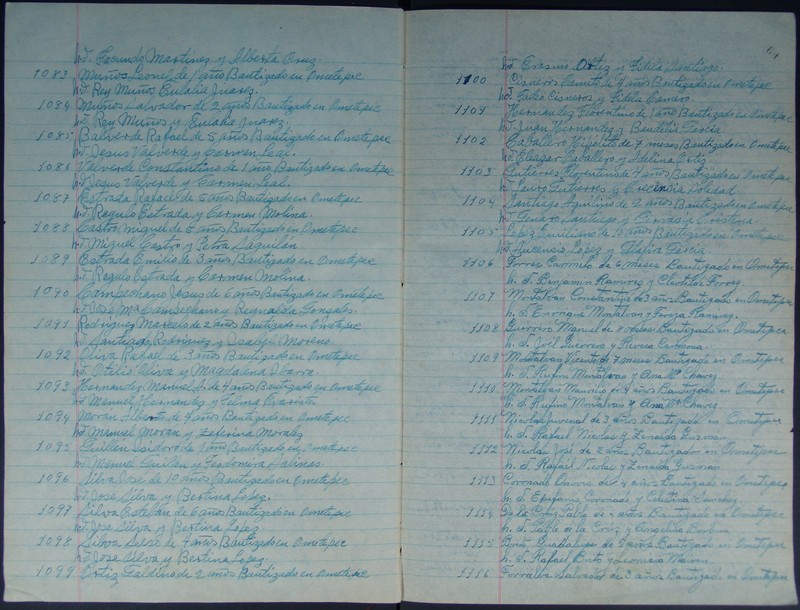 hJ. Facundo Martinez y Alberta Cruz.
1083 Muños Leonel de 1 año Bautizado en Ometepec
hJ. Rey Muños Eulalia Juarez.
1084 Muños Salvador de 2 años Bautizado en Ometepec
hJ. Rey Muños y Eulalia Juarez.
1085 Balverde Rafael de 5 años Bautizado en Ometepec
hJ. Jesus Valverde y Carmen Leal.
1086 Valverde Constantino de 1 año Bautizado en Ometepec
hJ. Jesus Valverde y Carmen Leal.
1087 Estrada Rafael de 5 años Bautizado en Ometepec
hJ. Regulo Estrada y Carmen Molina.
1088 Castro Miguel de 5 años Bautizado en Ometepec
hJ. Miguel Castro y Petra Saguilan
1089 Estrada Emilio de 3 años Bautizado en Ometepec
hJ. Regulo Estrada y Carmen Molina.
1090 Campechano Jesus de 6 años Bautizado en Ometepec
hJ. Jose Ma Campechano y Reynalda Gonzales.
1091 Rodriguez Marcelo de 2 años Bautizado en Ometepec
hJ. Santiago Rodriguez y Moreno.
1092 Oliva Rafael de 3 años Bautizado en Ometepec
hJ. Otelio Oliva y Magdalena Ibarra.
1093 Hernandez Manuel J. de 4 años Bautizado en Ometepec
hJ. Manuel Hernandez y
1094 Moran Alberto de 4 años Bautizado en Ometepec
hJ. Manuel Moran y Zeferina Morales
1095 Guillen Isidoro de 1 año Bautizado en Ometepec
hJ. Manuel Guillen y Teodomira Salinas.
1096 Silva Jose de 10 años Bautizado en Ometepec
hJ. Jose Silva y Bertina Lopez.
1097 Silva Esteban de 6 años Bautizado en Ometepec
hJ. Jose Silva y Bertina Lopez
1098 Silva Celso de 4 años Bautizado en Ometepec
hJ. Jose Silva y Bertina Lopez
1099 Ortiz Galdino de 2 años Bautizado en Ometepec
hJ. Erasmo Ortiz y Fidela Santiago.
1100 Cisneros de 4 años Bautizado en Ometepec
hJ. Cisneros y Fidela
1101 Hernandez Florentino de 1 año Bautizado en Ometepec
hJ. Juan Hernandez y Baudelia
1102 Caballero Hipolito de 7 meses Bautizado en Ometepec
hJ. Eleazar Caballero y Adelina Ortiz
1103 Gutierres Florentino de 4 años Bautizado en Ometepec
hJ. Gutierres y Crecencia Soledad
1104 Santiago Aquilino de 2 años Bautizado en Ometepec
hJ. Genaro Santiago y Cristina.
1105 Lopez Emiliano de años Bautizado en Ometepec
hJ. Lopez y
1106 Torres de 6 meses Bautizado en Ometepec
h. J. Benjamin Ramirez y Clotilde Torres.
1107 Montalvan de 3 años Bautizado en Ometepec
h. J. Enrique Montalvan y Ramirez.
1108 Guerrero Manuel de 8 Bautizado en Ometepec
h. J. Joel Guerrero y
1109 Montalvan Vicente de 7 meses Bautizado en Ometepec
h. J. Rufino Montalvan y Ana Ma Chavez
1110 Montalvan Mauricio de 4 años Bautizado en Ometepec
h. J. Rufino Montalvan y Ana Ma Chavez
1111 Nicolas Juvenal de 3 años Bautizado en Ometepec
h. J. Rafael Nicolas y Zenaida Guzman
1112 Nicolas Jose de 2 años Bautizado en Ometepec
h. J. Rafael Nicolas y Zenaida Guzman
1113 Coronado de 4 años Bautizado en Ometepec
h. J. Epifanio Coronado y Celestina Sanchez
1114 De la Cruz Pablo de 4 años Bautizado en Ometepec
h. J. Pablo de la Cruz y Angelita
1115 Brito Guadalupe de 5 años Bautizado en Ometepec
h. J. Rafael Brito y
1116 Torralva Salvador de 3 años Bautizado en Ometepec